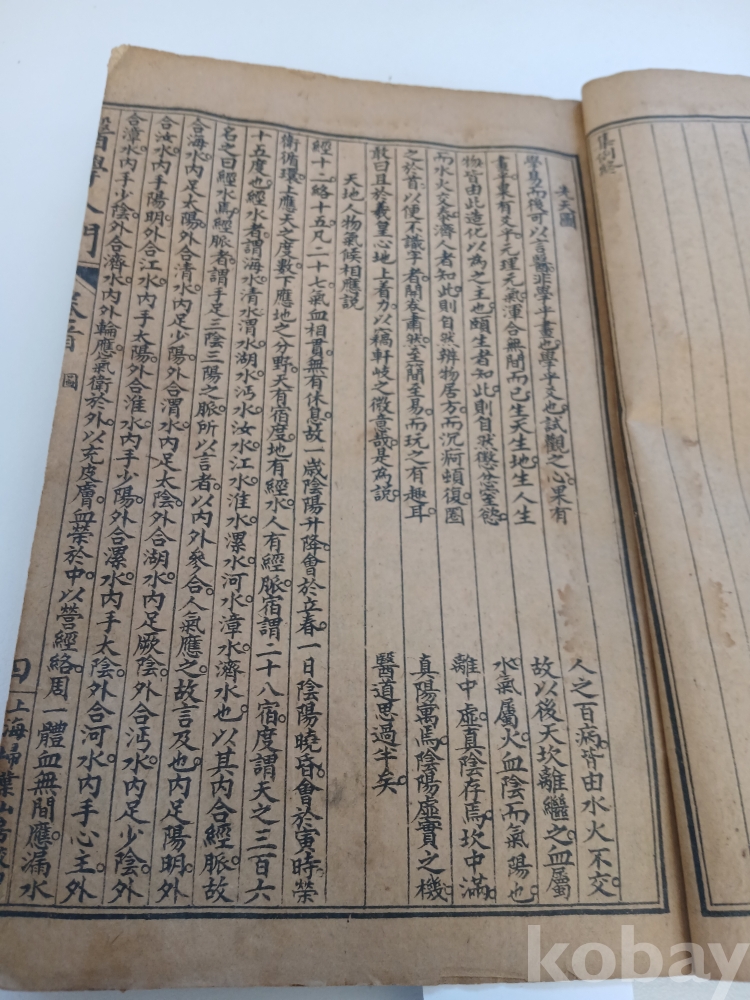 集例終
先天圖
學易而後可以言醫非學乎畫也學乎爻也試觀之心果有
畫乎果有爻乎元理元氣渾合無間而已生天生地生人生
物皆由此造化以為之主也頤生者知此則自然懲忿窒慾
而水火交泰濟人者知此則自然辨物居方而沉疴頓復圖
之於首以便不識字者開卷肅然至簡至易而玩之有趣耳
敢曰且於羲皇心地上着力以稱軒岐之徵意哉是為說
人之百病皆由水火不交
故以後天坎離繼之血屬
水氣屬火血陰而氣陽也
離中虛真陰存焉坎中滿
真陽寓焉陰陽虛實之機
醫道思過半矣
天地人物氣候相應說
經十二絡十五凡二十七氣血相貫無有休息故一歲陰陽升降會於立春一日陰陽曉昏會於寅時榮
衛循環上應天之度數下應地之分野天有宿度地有經水人有經脈宿謂二十八宿度謂天之三百六
十五度也經水者謂海水清水渭水湖水沔水汝水江水淮水漯水河水漳水濟水也以其內合經脈故
名之曰經水焉經脈者謂手足三陰三陽之脈所以言者以內外參合人氣應之故言及也內足陽明外
合海水內足太陽外合清水內足少陽外合渭水內足太陰外合湖水內足厥陰外合沔水內足少陰外
合汝水內手陽明外合江水內手太陽外合淮水內手少陽外合漯水內手太陰外合河水內手心主外
合漳水內手少陰外合濟水內外輪應氣衛於外以充皮膚血榮於中以營經絡周一體血無間應漏水
醫學入門 卷首 圖 四 上海掃葉山房
kobay